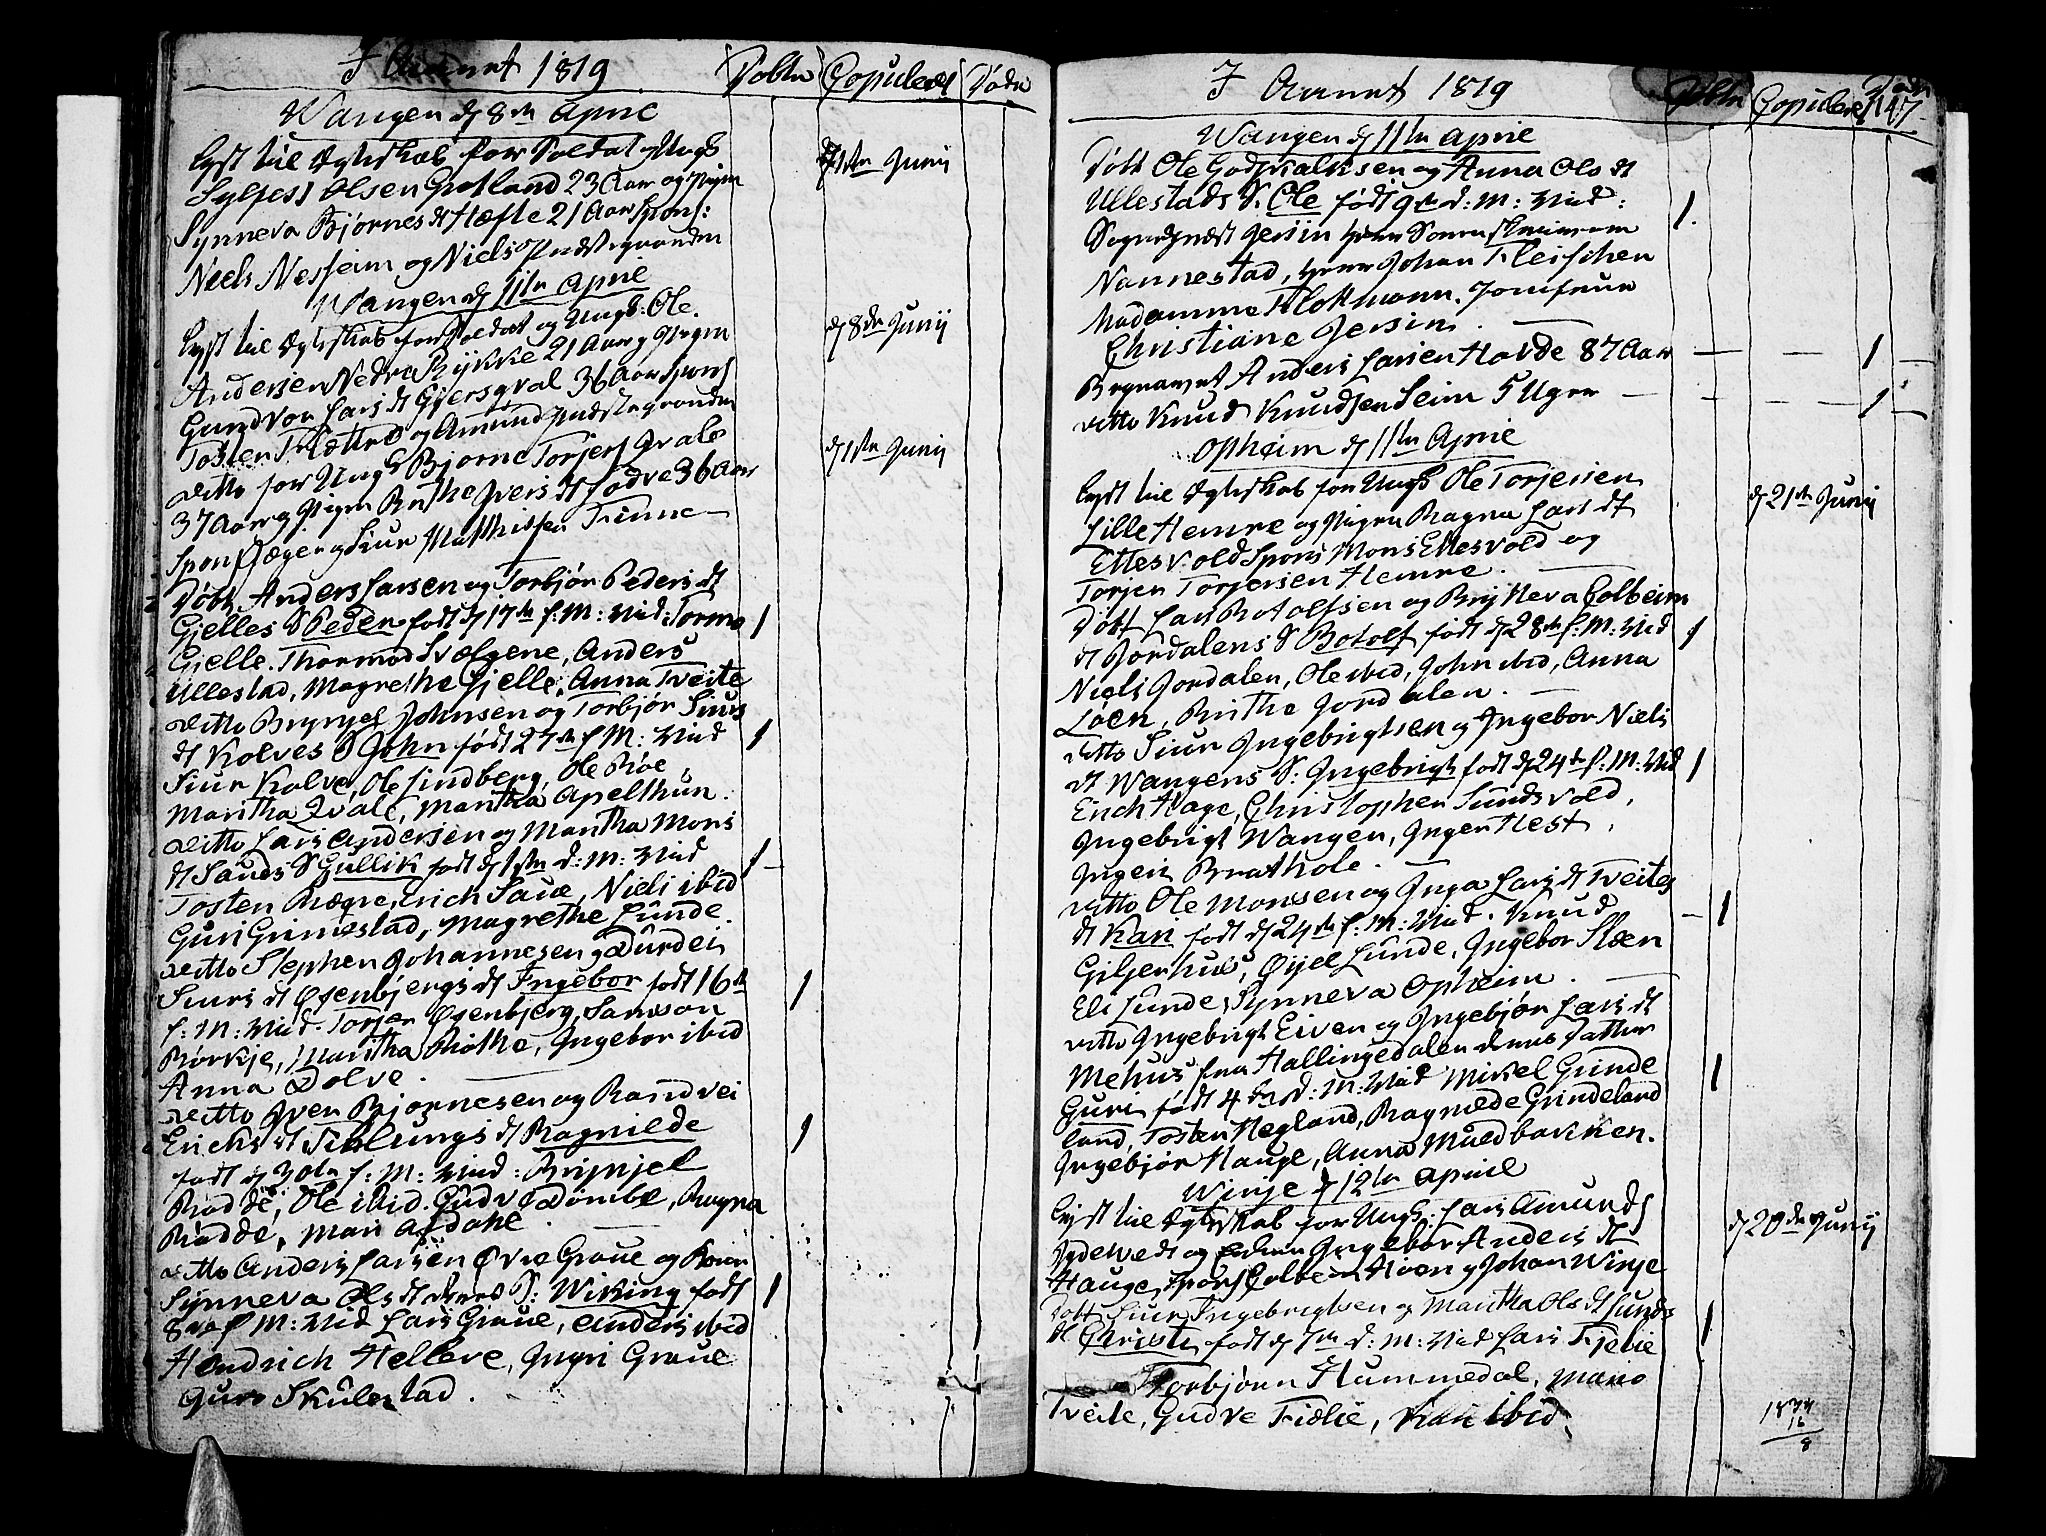 I Aaret 1819 Døbte Copulerede Døde
Wangen d 8de April
Lyst til Egteskab for Soldat og Ungk
Sylfest Olsen Grotland 23 Aar og Pigen d 1ste Junij
Synneva Bjørnes dt Hæfte 21 Aar Spons:
Niels Nesheim og Niels
Wangen d 11te April
Lyst til Egteskab for Soldat og Ungk: Ole d 8de Junij
Andersen Nedre Rykke 21 Aar og Pigen
Gundvor Lars dt Gjersqval 36 Aar Spons
Tosten Flatte og Amund
ditto for Ungk Bjørne Torjers Qvale d 1ste Junij
37 Aar og Pigen Brithe Ivers dt Jodve 36 Aar
Spons Jæger og Siur Matthissen Finne
Døbt Anders Larsen og Torbjør Peders dt
Gjelles S Peder født d 17de f: M: Vid: Tormo 1
Gjelle. Thormod Svælgene, Anders
Ullestad, Magrethe Gjelle, Anna Tveite
ditto Brynjel Johnsen og Torbjør Siurs
dt Kolves S John født 27de f M: Vid 1
Siur Kolve, Ole Lindberg, Ole Røe
Maritha Qvale, Maritha Apelthun.
ditto Lars Andersen og Maritha Mons
dt Sauds S Gullik født d 1ste d: M: Vid 1
Tosten Rægne, Erich Saue, Niels ibid
Guri Grimestad, Magrethe Lunde.
ditto Stephen Johannesen og Durdei
Siurs dt Øfenbjergs dt Ingebor født 16de 1
f: M: Vid. Torjer Øsenbjerg, Samson
Rørkje, Maritha Røthe, Ingebor ibid
Anna Dolve.
ditto Iver Bjørnesen og Randvei
Erichs dt Schlungs dt Ragnilde 1
født d 30te f: M: Vid: Brynjel
Rødde, Ole ibid. Gudve Dømbe, Ragna
Rødde, Mari Afdahl.
ditto Anders Larsen Øvre Graue og Kone
Synneva Ols dt deres S: Wiking født 1
8de f M: Vid Lars Graue, Anders ibid
Hendrich Hellere, Ingri Graue
Guro Skulestad.
I Aaret 1819 Døbte Copulere Døde 147.
Wangen d 11te April
Døbt Ole Godskalksen og Anna Ols dt
Ullestads S. Ole født 9de d: M: Vid: 1.
Sognepræst Jersin
Nannestad, Herr Johan Fleischer
Madamme Klokmann. Jomfrue
Christiane Jersin.
Begravet Anders Larsen Horde 87 Aar 1
ditto Knud Knudsen Seim 5 Uger 1
Opheim d 11te April
Lyst til Egteskab for Ungk Ole Torjersen d 21de Junij
Lille Hemre og Pigen Ragna Lars dt
Ettesvold Spons Mons Ettesvold og
Torjer Torjersen Hemre.
Døbt Lars Botolfsen og Brytteva Colbeins
dt Jordalens S Botolf født d 28de f: M: Vid 1
Niels Jordalen, Ole ibid, John ibid, Anna
Løen, Brithe Jordalen.
ditto Siur Ingebrigtsen og Ingebor Niels
dt Wangens S: Ingebrigt født d 24de f: M: Vid 1
Erich Hage, Christopher Sundsvold,
Ingebrigt Wangen, Inger Hest,
Ingeri Brathole.
ditto Ole Monsen og Inga Lars dt Tveites
dt Kari født d 24de f: M: Vid. Knud 1
Giljerhus, Øyel Lunde, Ingebor Støen
Eli Lunde, Synneva Opheim.
ditto Ingebrigt Eiven og Ingebjør Lars dt
Mehus fra Hallingedalen deres Datter
Guri født 4de d: M: Vid Mikel Grinde 1
land, Tosten Hegland, Ragnilde Grindeland
Ingebjør Hauge, Anna Muldbakken.
Winje d 12te April
Lyst til Egteskab for Ungk: Lars Amunds d 20de Junij
og Enken Ingebor Anders dt
Hauge, Spons Colbein Høen og Johan Winje
Døbt Siur Ingebrigtsen og Maritha Ols dt Lunds
dt Christi født d 7de d: M: Vid Lars Fjelie 1
Torbjørn Hummedal, Mari
Tveite, Gudve Fielie, Kari ibid